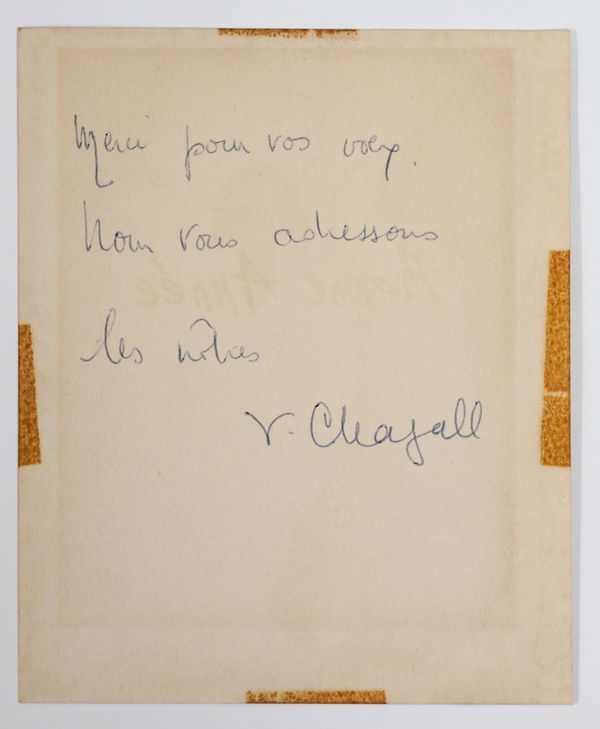 Merci pour vos vœux.
Nous vous adressons
les nôtres
V. Chagall
Bonne Année